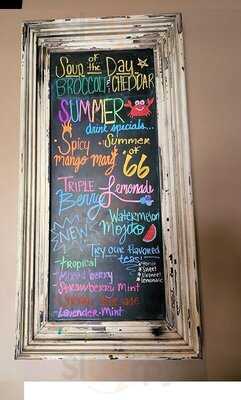 Soup of the Day
BROCCOLI CHEDDAR
SUMMER
drink specials...
Spicy mango marg
Summer of '66
TRIPLE Berry Lemonade
NEW
Watermelon Mojito
Try our flavored teas!
tropical
Mixed berry
Strawberry Mint
Lavender-Mint
sweet
lemonade